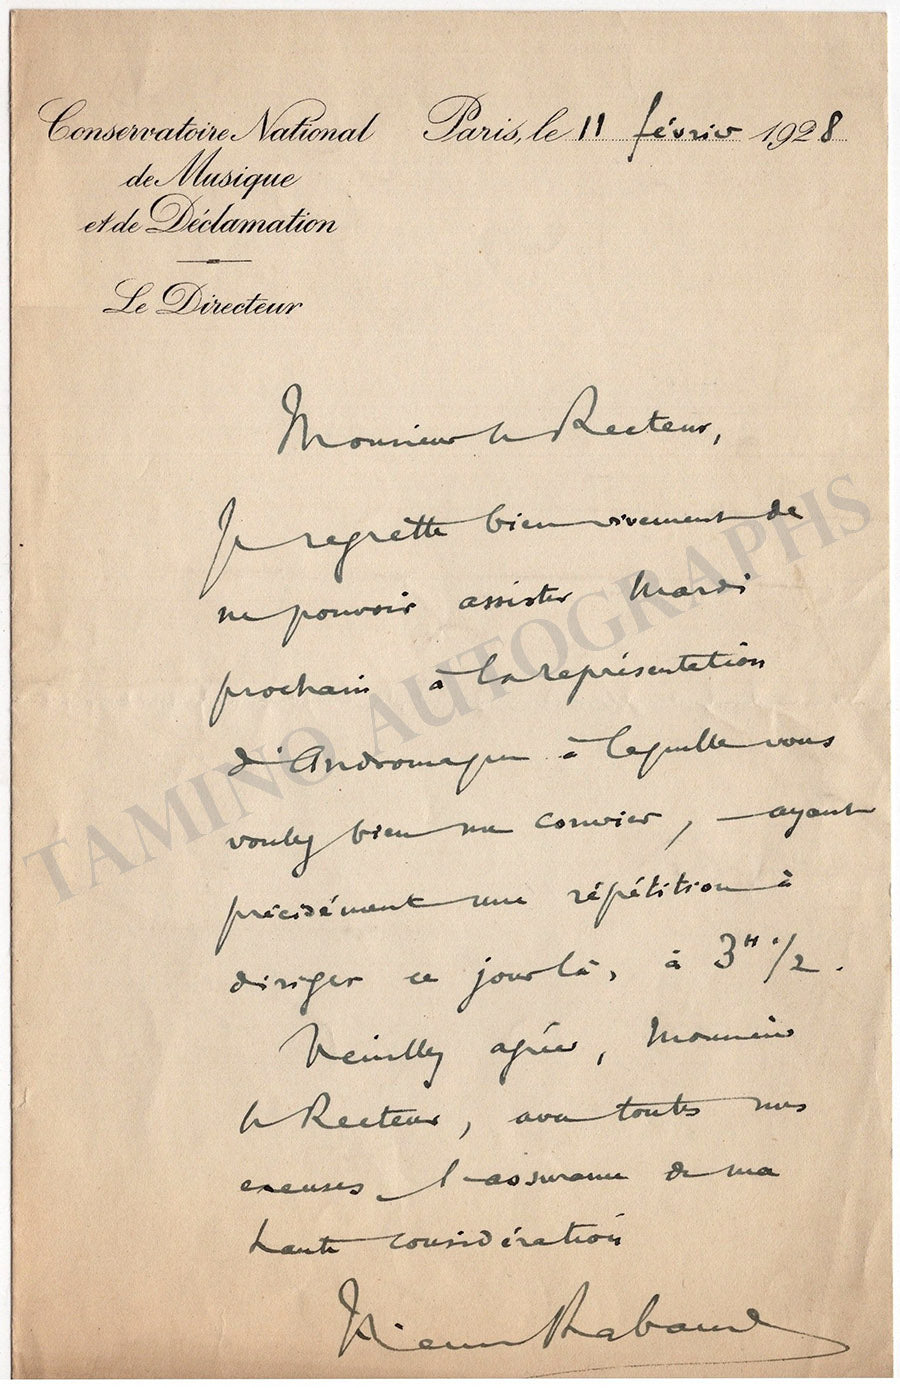 Conservatoire National
de Musique
et de Déclamation
Le Directeur
Paris, le 11 février 1928
Monsieur le Recteur,
Je regrette bien vivement de
ne pouvoir assister Mardi
prochain à la représentation
d'Andromaque à laquelle vous
voulez bien me convier, ayant
précisément une répétition à
diriger ce jour là, à 3H 1/2.
Veuillez agréer, Monsieur
le Recteur, avec toutes mes
excuses l'assurance de ma
haute considération
Henri Rabaud
TAMINO AUTOGRAPHS